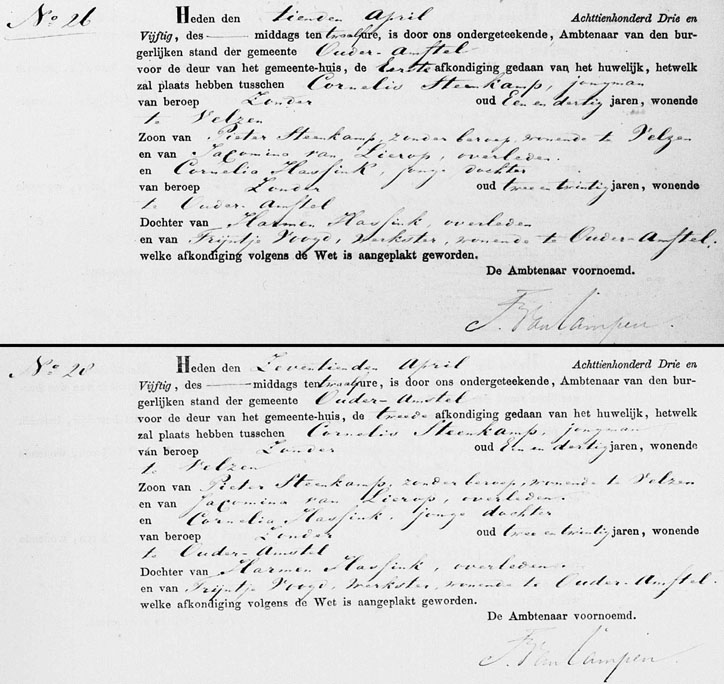 No 26
Heden den tienden April Achttienhonderd Drie en
Vijftig, des middags ten twaalf ure, is door ons ondergeteekende, Ambtenaar van den bur-
gerlijken stand der gemeente Ouder-Amstel
voor de deur van het gemeente-huis, de Eerste afkondiging gedaan van het huwelijk, hetwelk
zal plaats hebben tusschen Cornelis Steenkamp, jongman
van beroep Zonder oud Een en dertig jaren, wonende
te Velzen
Zoon van Pieter Steenkamp, zonder beroep, wonende te Velzen
en van Jacomina van Lierop, overleden.
en Cornelia Hassink, jonge dochter
van beroep Zonder oud twee en twintig jaren, wonende
te Ouder-Amstel
Dochter van Harmen Hassink overleden
en van Trijntje Voogd, werkster, wonende te Ouder-Amstel.
welke afkondiging volgens de Wet is aangeplakt geworden.
De Ambtenaar voornoemd.
J. Van Campen.
No 28
Heden den Zeventienden April Achttienhonderd Drie en
Vijftig, des middags ten twaalf ure, is door ons ondergeteekende, Ambtenaar van den bur-
gerlijken stand der gemeente Ouder-Amstel
voor de deur van het gemeente-huis, de tweede afkondiging gedaan van het huwelijk, hetwelk
zal plaats hebben tusschen Cornelis Steenkamp, jongman
van beroep Zonder oud Een en dertig jaren, wonende
te Velzen
Zoon van Pieter Steenkamp, zonder beroep, wonende te Velzen
en van Jacomina van Lierop, overleden.
en Cornelia Hassink, jonge dochter
van beroep Zonder oud twee en twintig jaren, wonende
te Ouder-Amstel
Dochter van Harmen Hassink, overleden.
en van Trijntje Voogd, werkster, wonende te Ouder-Amstel.
welke afkondiging volgens de Wet is aangeplakt geworden.
De Ambtenaar voornoemd.
J. Van Campen.